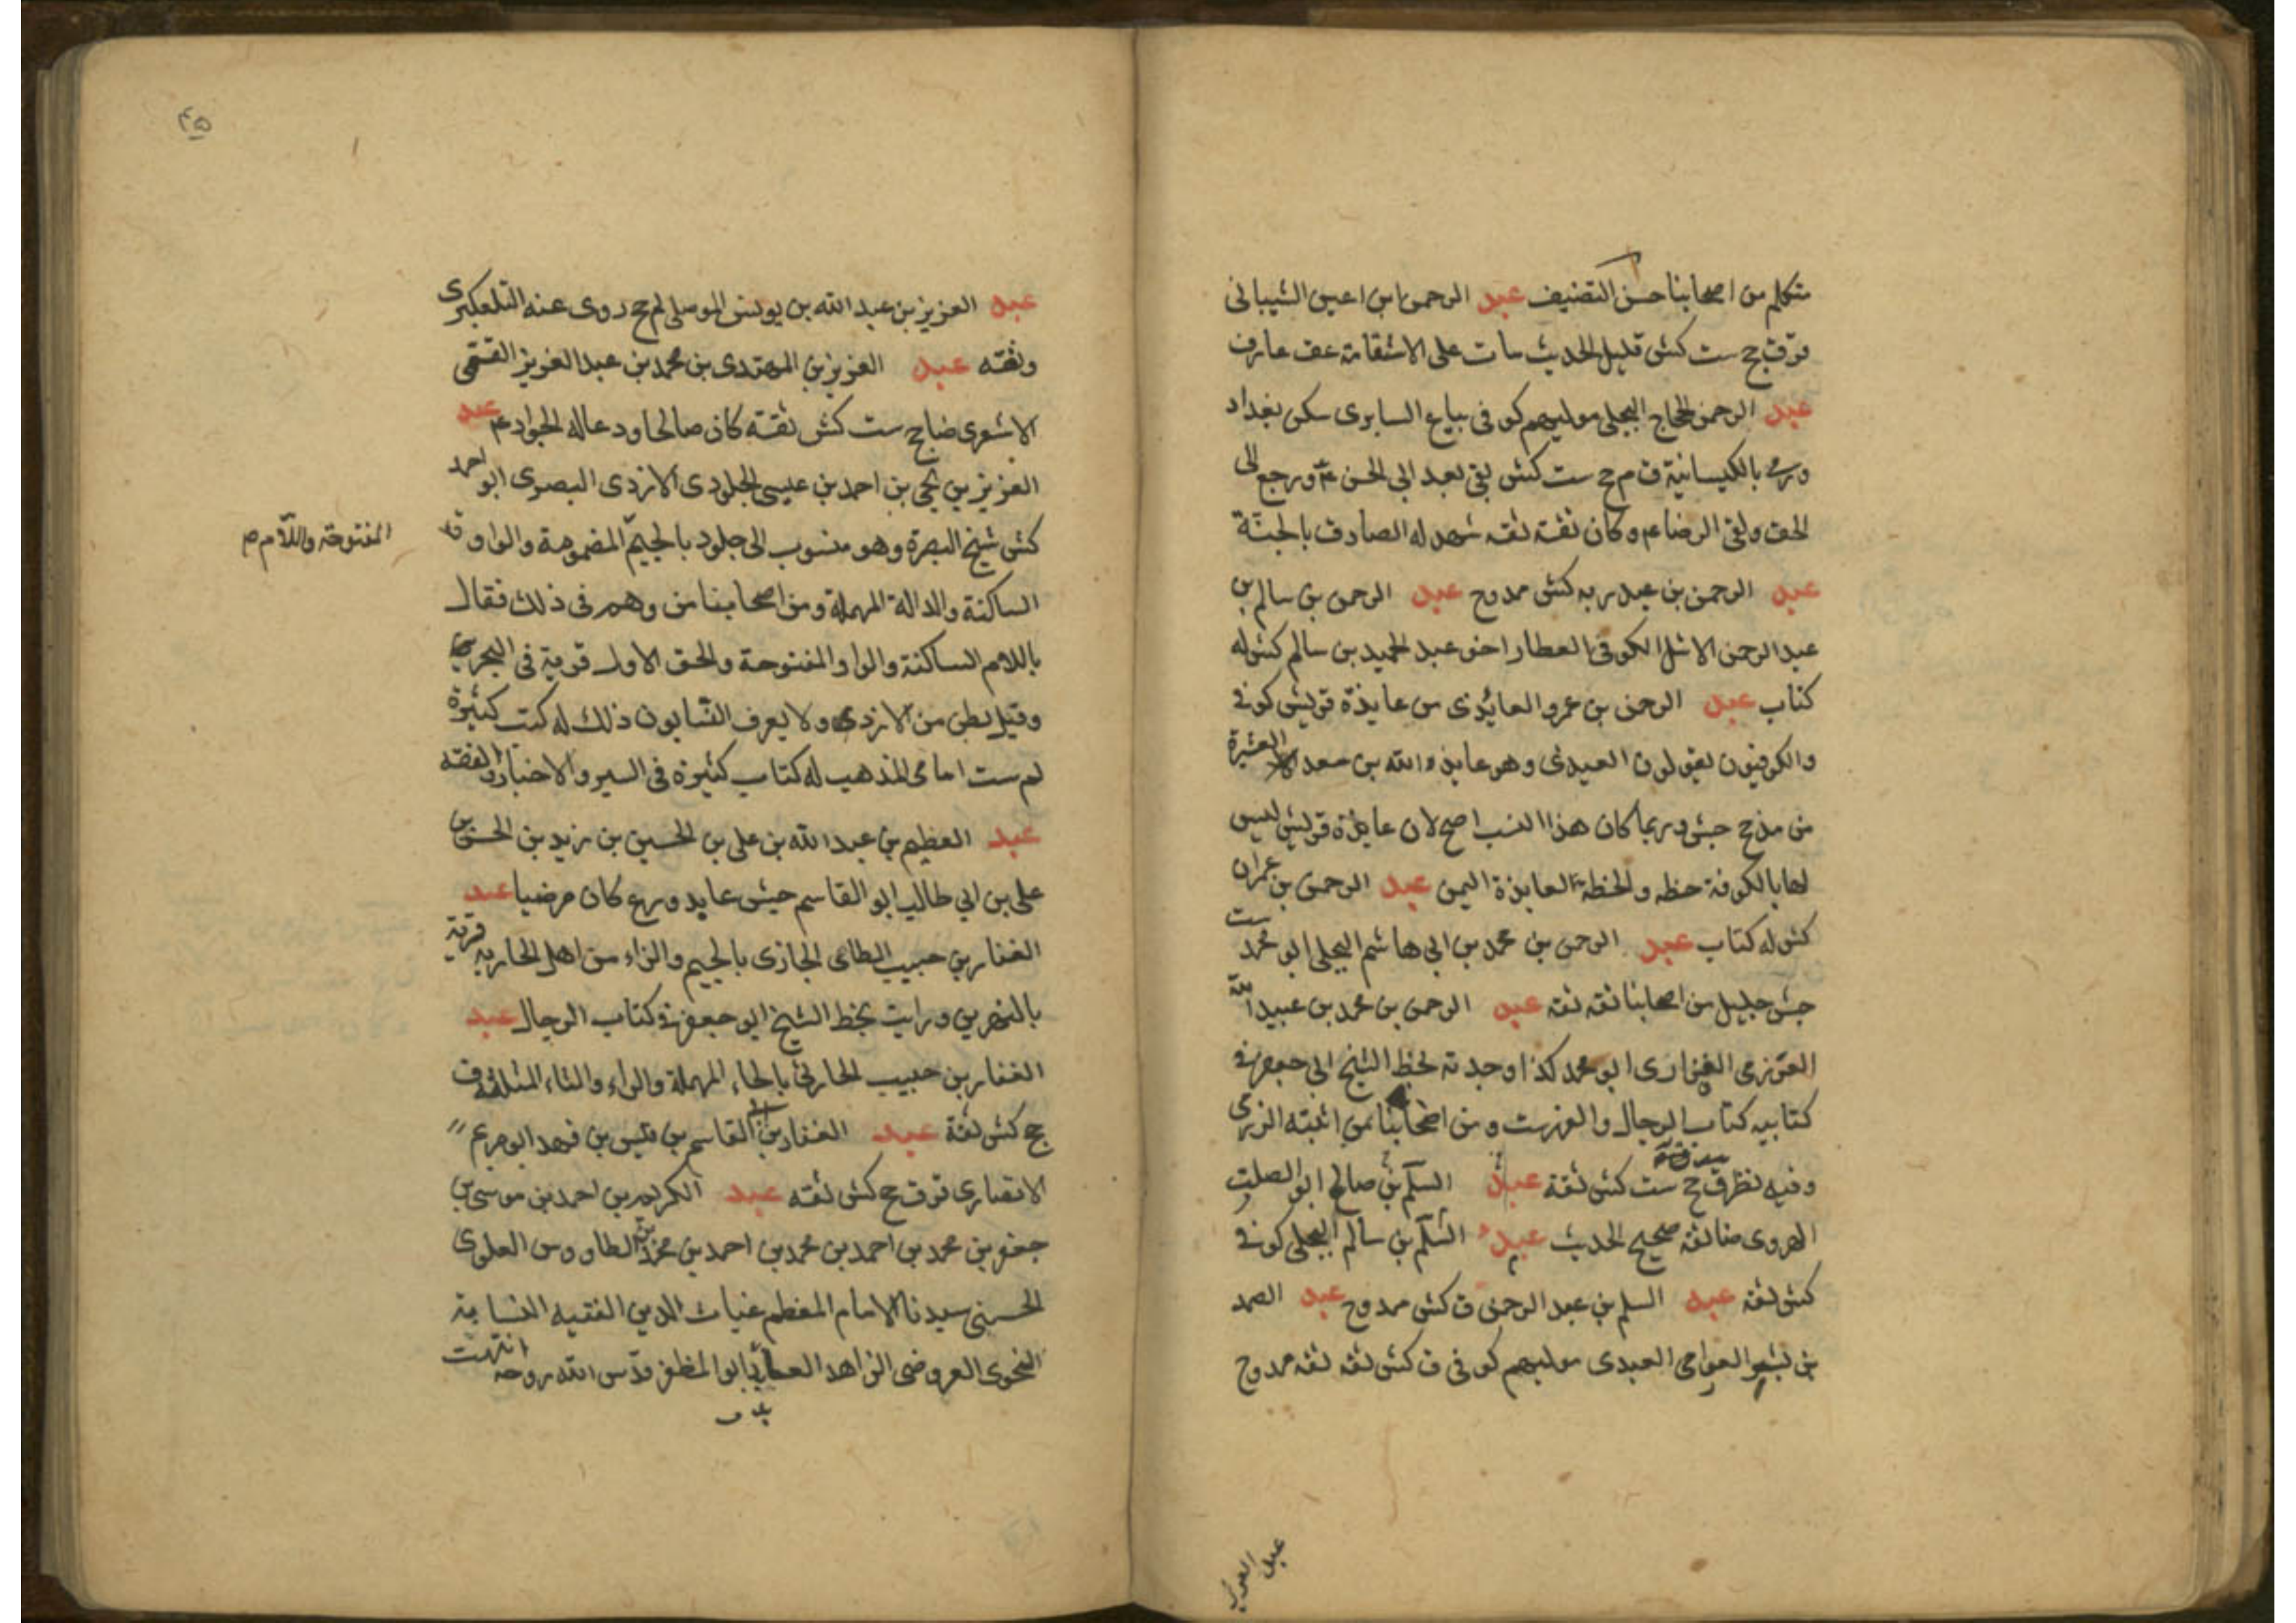 متكلم من اصحابنا حسن التصنيف عبد الرحمن بن اعين الشيبانى
قر ق جح ست كش قليل الحديث مات على الاستقامة عق عارف
عبد الرحمن الحجاج البجلى موليهم كوفى بياع السابرى سكن بغداد
ورمى بالكيسانية ق م جح ست كش بقى بعد ابى الحسن ع ورجع الى
الحق ولقى الرضا ع وكان ثقة ثقه شهد له الصادق بالجنة
عبد الرحمن بن عبد ربه كش ممدوح عبد الرحمن بن سالم بن
عبد الرحمن الاشل الكوفى العطار اخو عبد الحميد بن سالم كش له
كتاب عبد الرحمن بن عمرو العايذى من عايذة قريش كوفى
والكوفيون يقولون العيذى وهو عايذ الله بن سعد العشيرة
من مذحج جش وربما كان هذا النسب اصح لان عايذة قريش ليس
لها بالكوفة خطه والخطة لعايذة اليمن عبد الرحمن بن عمران
كش له كتاب عبد الرحمن بن محمد بن ابى هاشم البجلى ابو محمد ست
جش جليل من اصحابنا ثقه ثقه عبد الرحمن بن محمد بن عبيد الله
العرزمى الفزارى ابو محمد كذا وجدته بخط الشيخ ابى جعفر فى
كتابيه كتاب الرجال والفهرست ومن اصحابنا من اثبته الرزمى
وفيه نظر ق جح ست كش ثقة عبد السلم بن صالح ابو الصلت
الهروى ضا ثقه صحيح الحديث عبد السلم بن سالم البجلى كوفى
كش ثقه عبد السلم بن عبد الرحمن ق كش ممدوح عبد الصمد
بن بشير العرامى العبدى موليهم كوفى ق كش ثقه ثقه ممدوح
عبد العزيز
٤٥
عبد العزيز بن عبد الله بن يونس الموصلى لم جح روى عنه التلعكبرى
وثقته عبد العزيز بن المهتدى بن محمد بن عبد العزيز القمى
الاشعرى ضا جح ست كش ثقة كان صالحا ودعا له الجواد ع عبد
العزيز بن يحيى بن احمد بن عيسى الجلودى الازدى البصرى ابو احمد
كش شيخ البصرة وهو منسوب الى جلود بالجيم المضمومة والواو
المفتوحة واللام م
الساكنة والدالة المهملة ومن اصحابنا من وهم فى ذلك فقال
باللام الساكنة والواو المفتوحة والحق الاول قرية فى البحر
وقيل بطن من الازد ولا يعرف النسابون ذلك له كتب كثيرة
لم ست امامى المذهب له كتاب كثيرة فى السير والاخبار والفقه
عبد العظيم بن عبد الله بن على بن الحسين بن زيد بن الحسن بن
على بن ابى طالب ابو القاسم جش عابد ورع كان مرضيا عبد
الغفار بن حبيب الطاى الجازى بالجيم والزاء من اهل الجازية قرية
بالنهرين ورايت بخط الشيخ ابو جعفر فى كتاب الرجال عبد
الغفار بن حبيب الحارثى بالحاء المهملة والراء والثاء المثلثة ق
جح كش ثقة عبد الغفار بن القاسم بن قيس بن فهد ابو مريم
الانصارى قر ق جح كش ثقه عبد الكريم بن احمد بن موسى بن
جعفر بن محمد بن احمد بن محمد بن احمد بن محمد بن الطاووس العلوى
الحسنى سيدنا الامام المعظم غياث الدين الفقيه النسابة
النحوى العروضى الزاهد العابد ابو المظفر قدس الله روحه انتهت